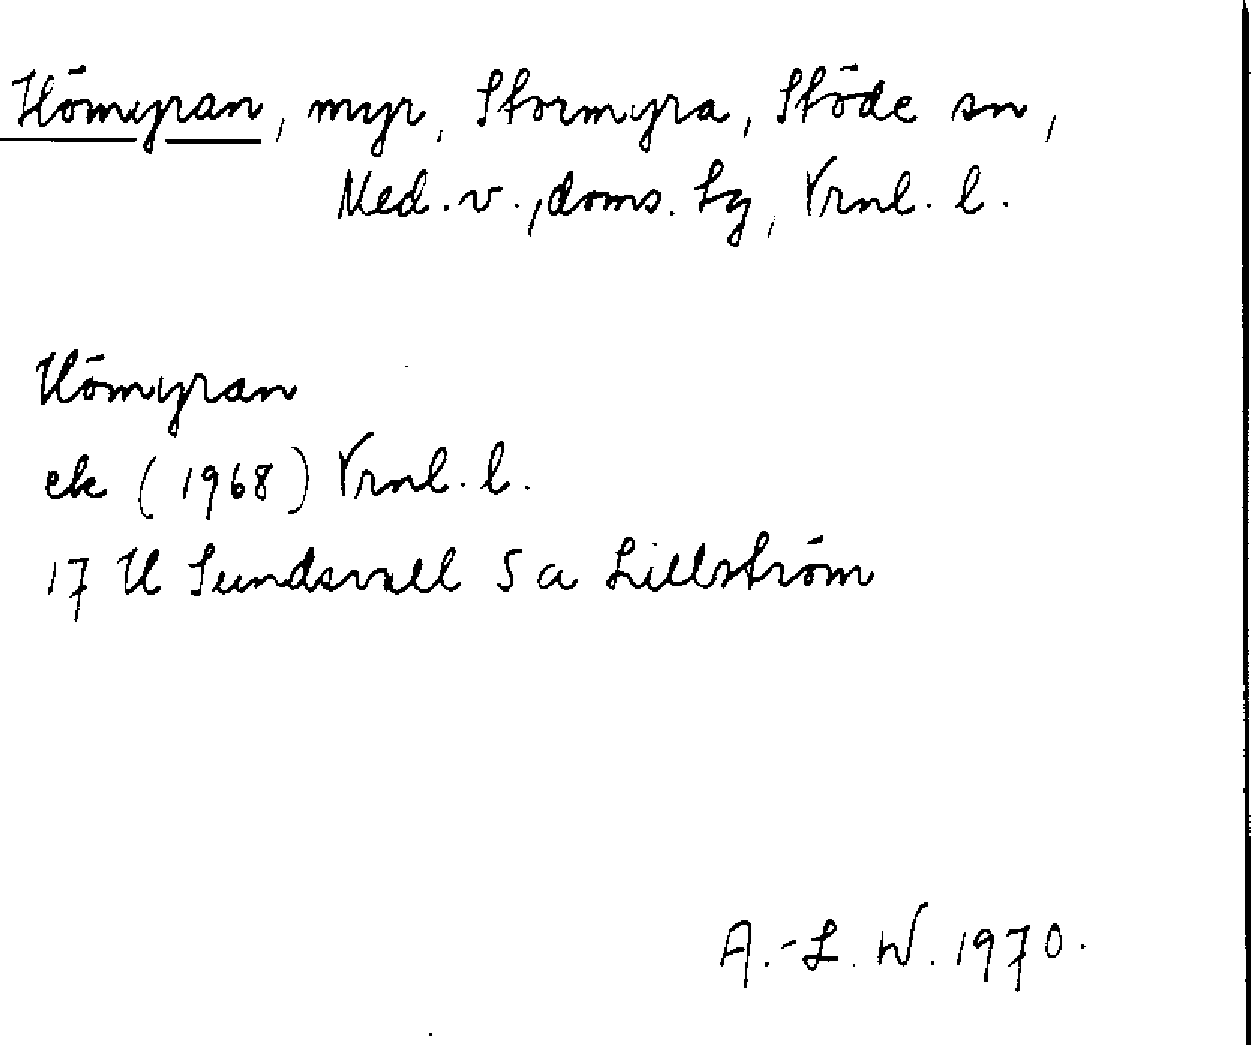 Hömyran, myr, Stormyra, Stöde sn,
Med. v., doms. Lg, Vrnl. l.
Hömyran
ek (1968) Vrnl. l.
17 H Sundsvall 5 a Lillström
A.-L. W. 1970.